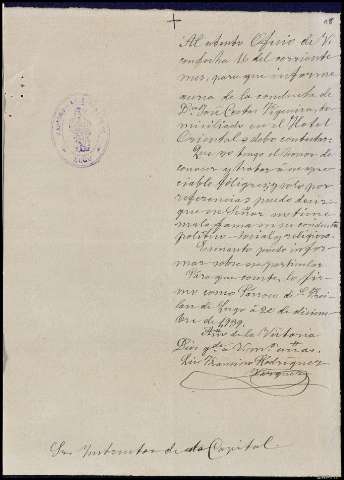 18
Al atento Oficio de V.
con fecha 16 del corriente
mes, para que informe
acerca de la conducta de
D. José Costas Figueira, do-
miciliado en el Hotel
Oriental, debo contestar:
Que no tengo el honor de
conocer y tratar á
ciable feligres; y solo por
referencias puedo decir
que ese Señor no tiene
mala fama en su conducta
politico-social y religiosa.
Es cuanto puedo infor-
mar sobre ese particular
Para que conste, lo fir-
mo como Párroco de S. Froi-
lan de Lugo á 20 de diciem-
bre de 1939.
Año de la Victoria
Dios gde á V. ms. años.
Rodriguez
Vazquez
LUGO
Sr. Instructor de Capital